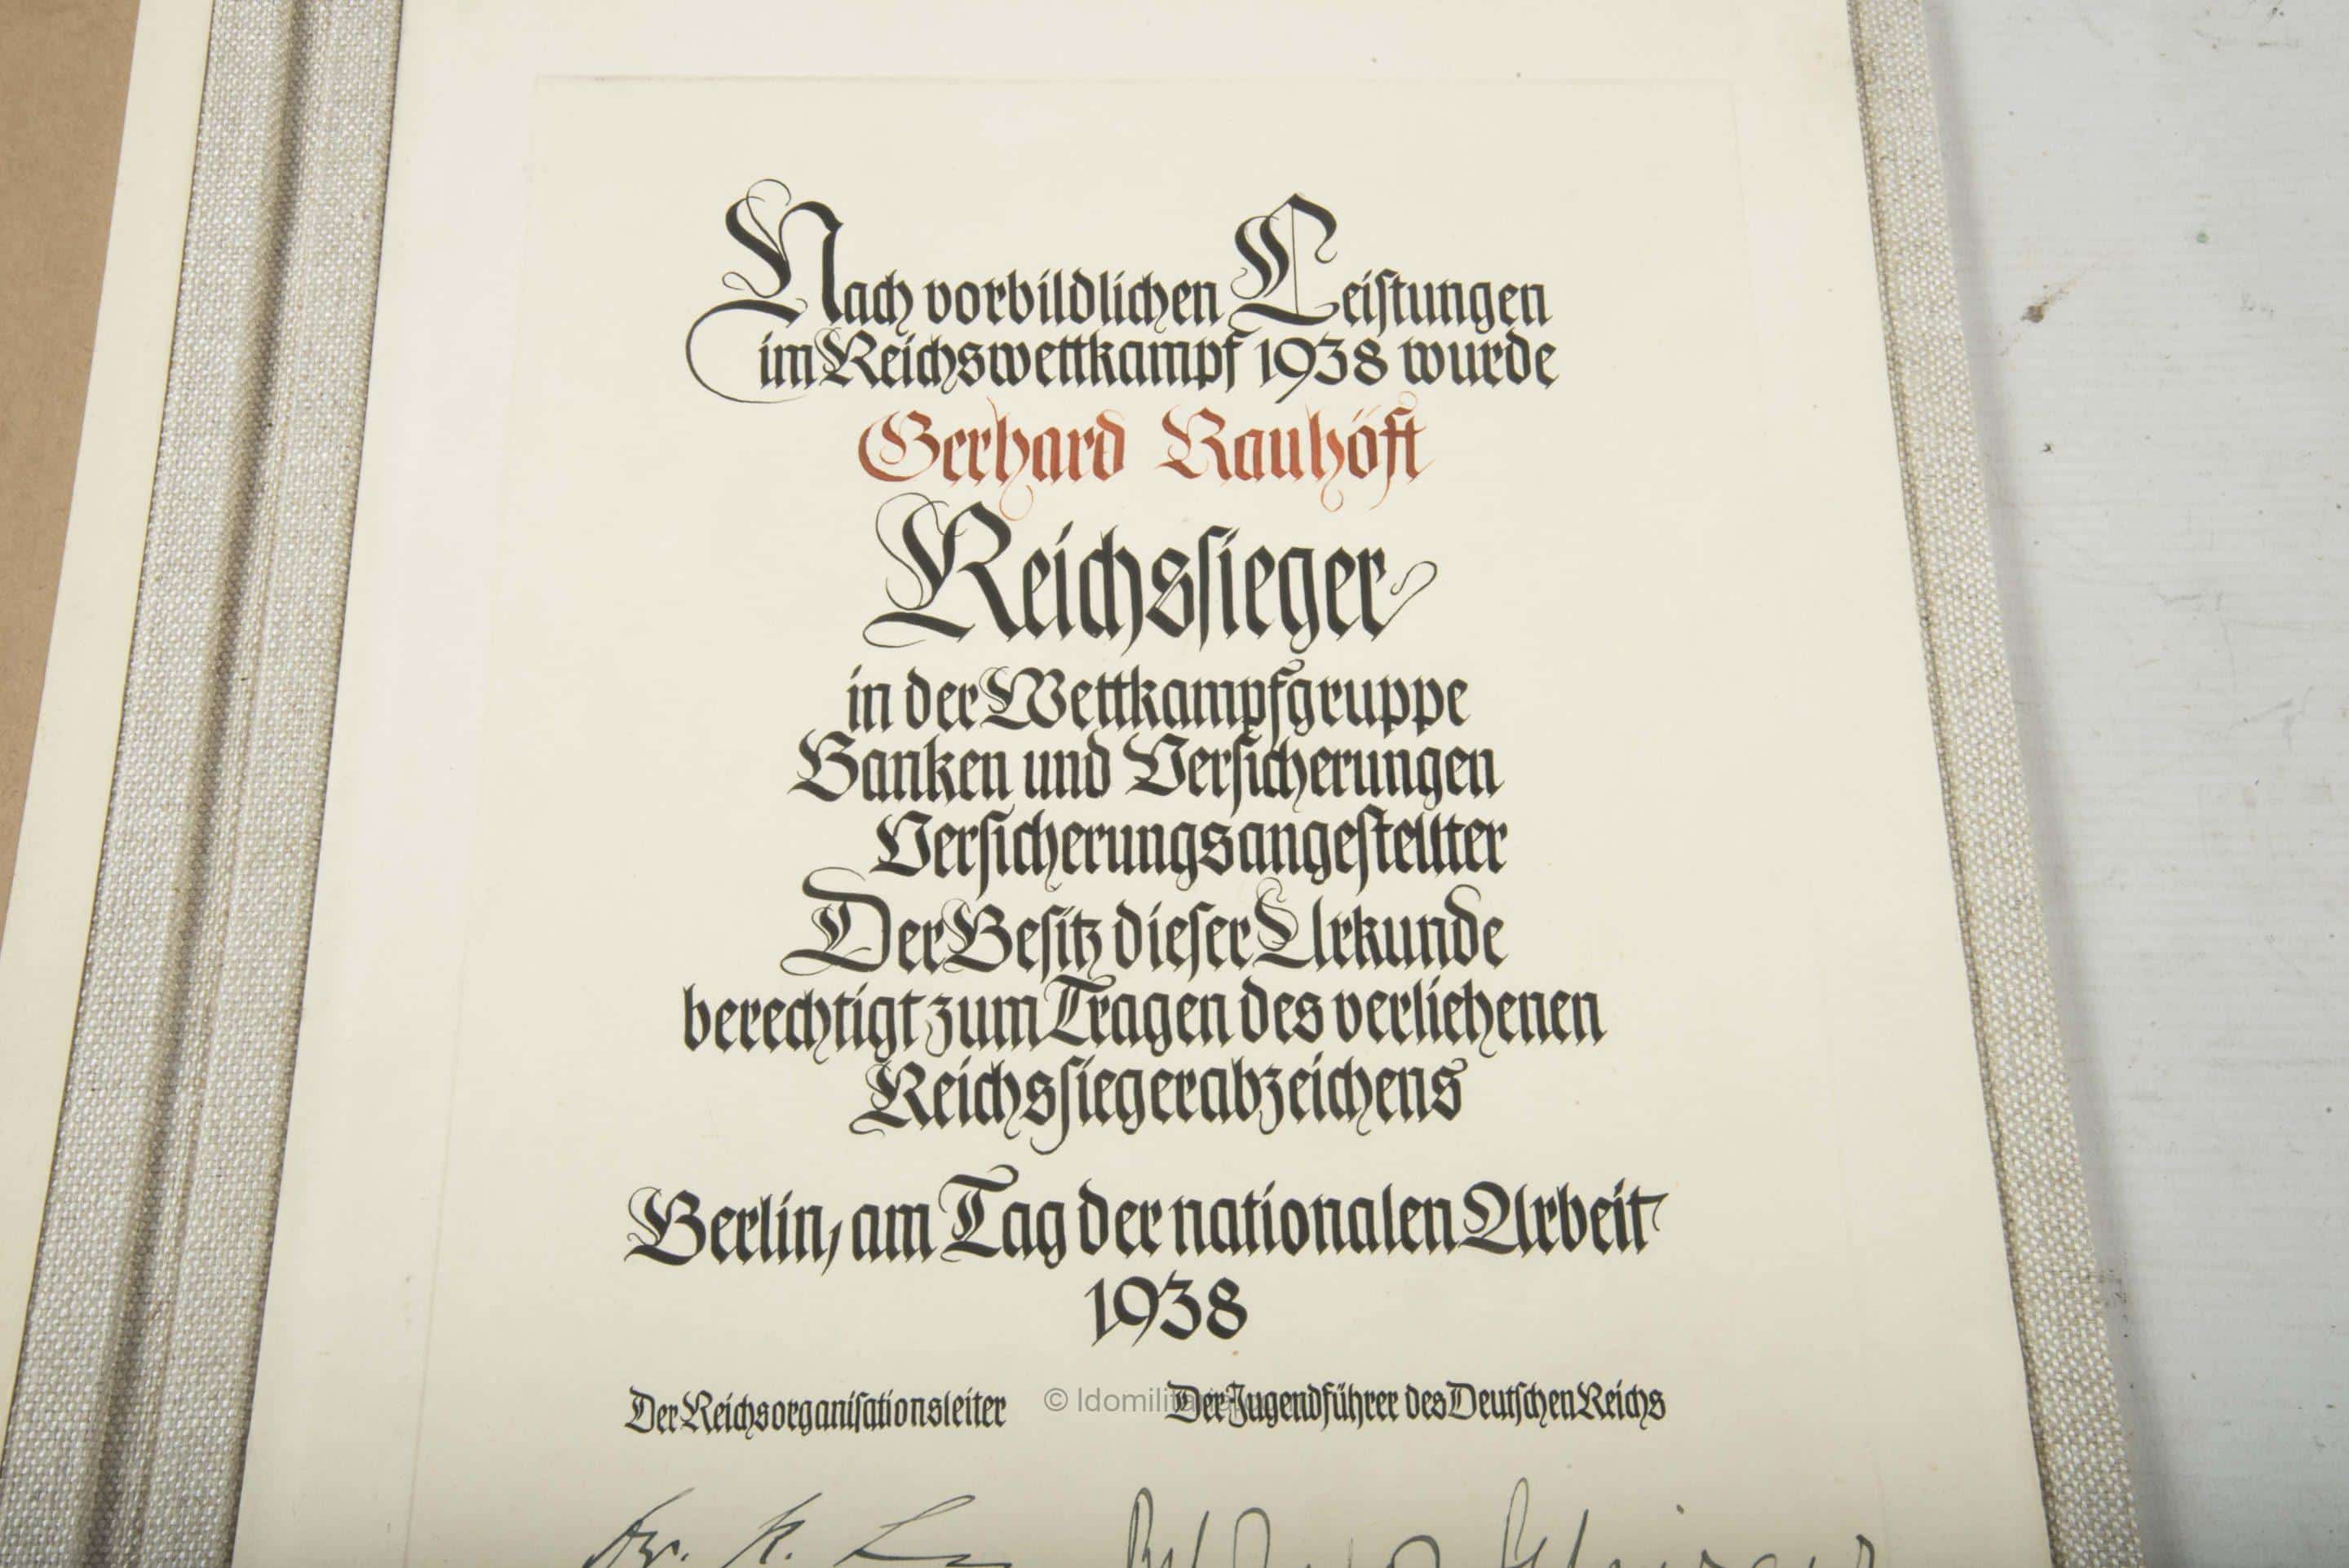 Nach vorbildlichen Leistungen
im Reichswettkampf 1938 wurde
Gerhard Rauhöft
Reichssieger
in der Wettkampfgruppe
Banken und Versicherungen
Versicherungsangestellter
Der Besitz dieser Urkunde
berechtigt zum Tragen des verliehenen
Reichssiegerabzeichens
Berlin, am Tag der nationalen Arbeit
1938
Der Reichsorganisationsleiter
Der Jugendführer des Deutschen Reichs
Dr. R.